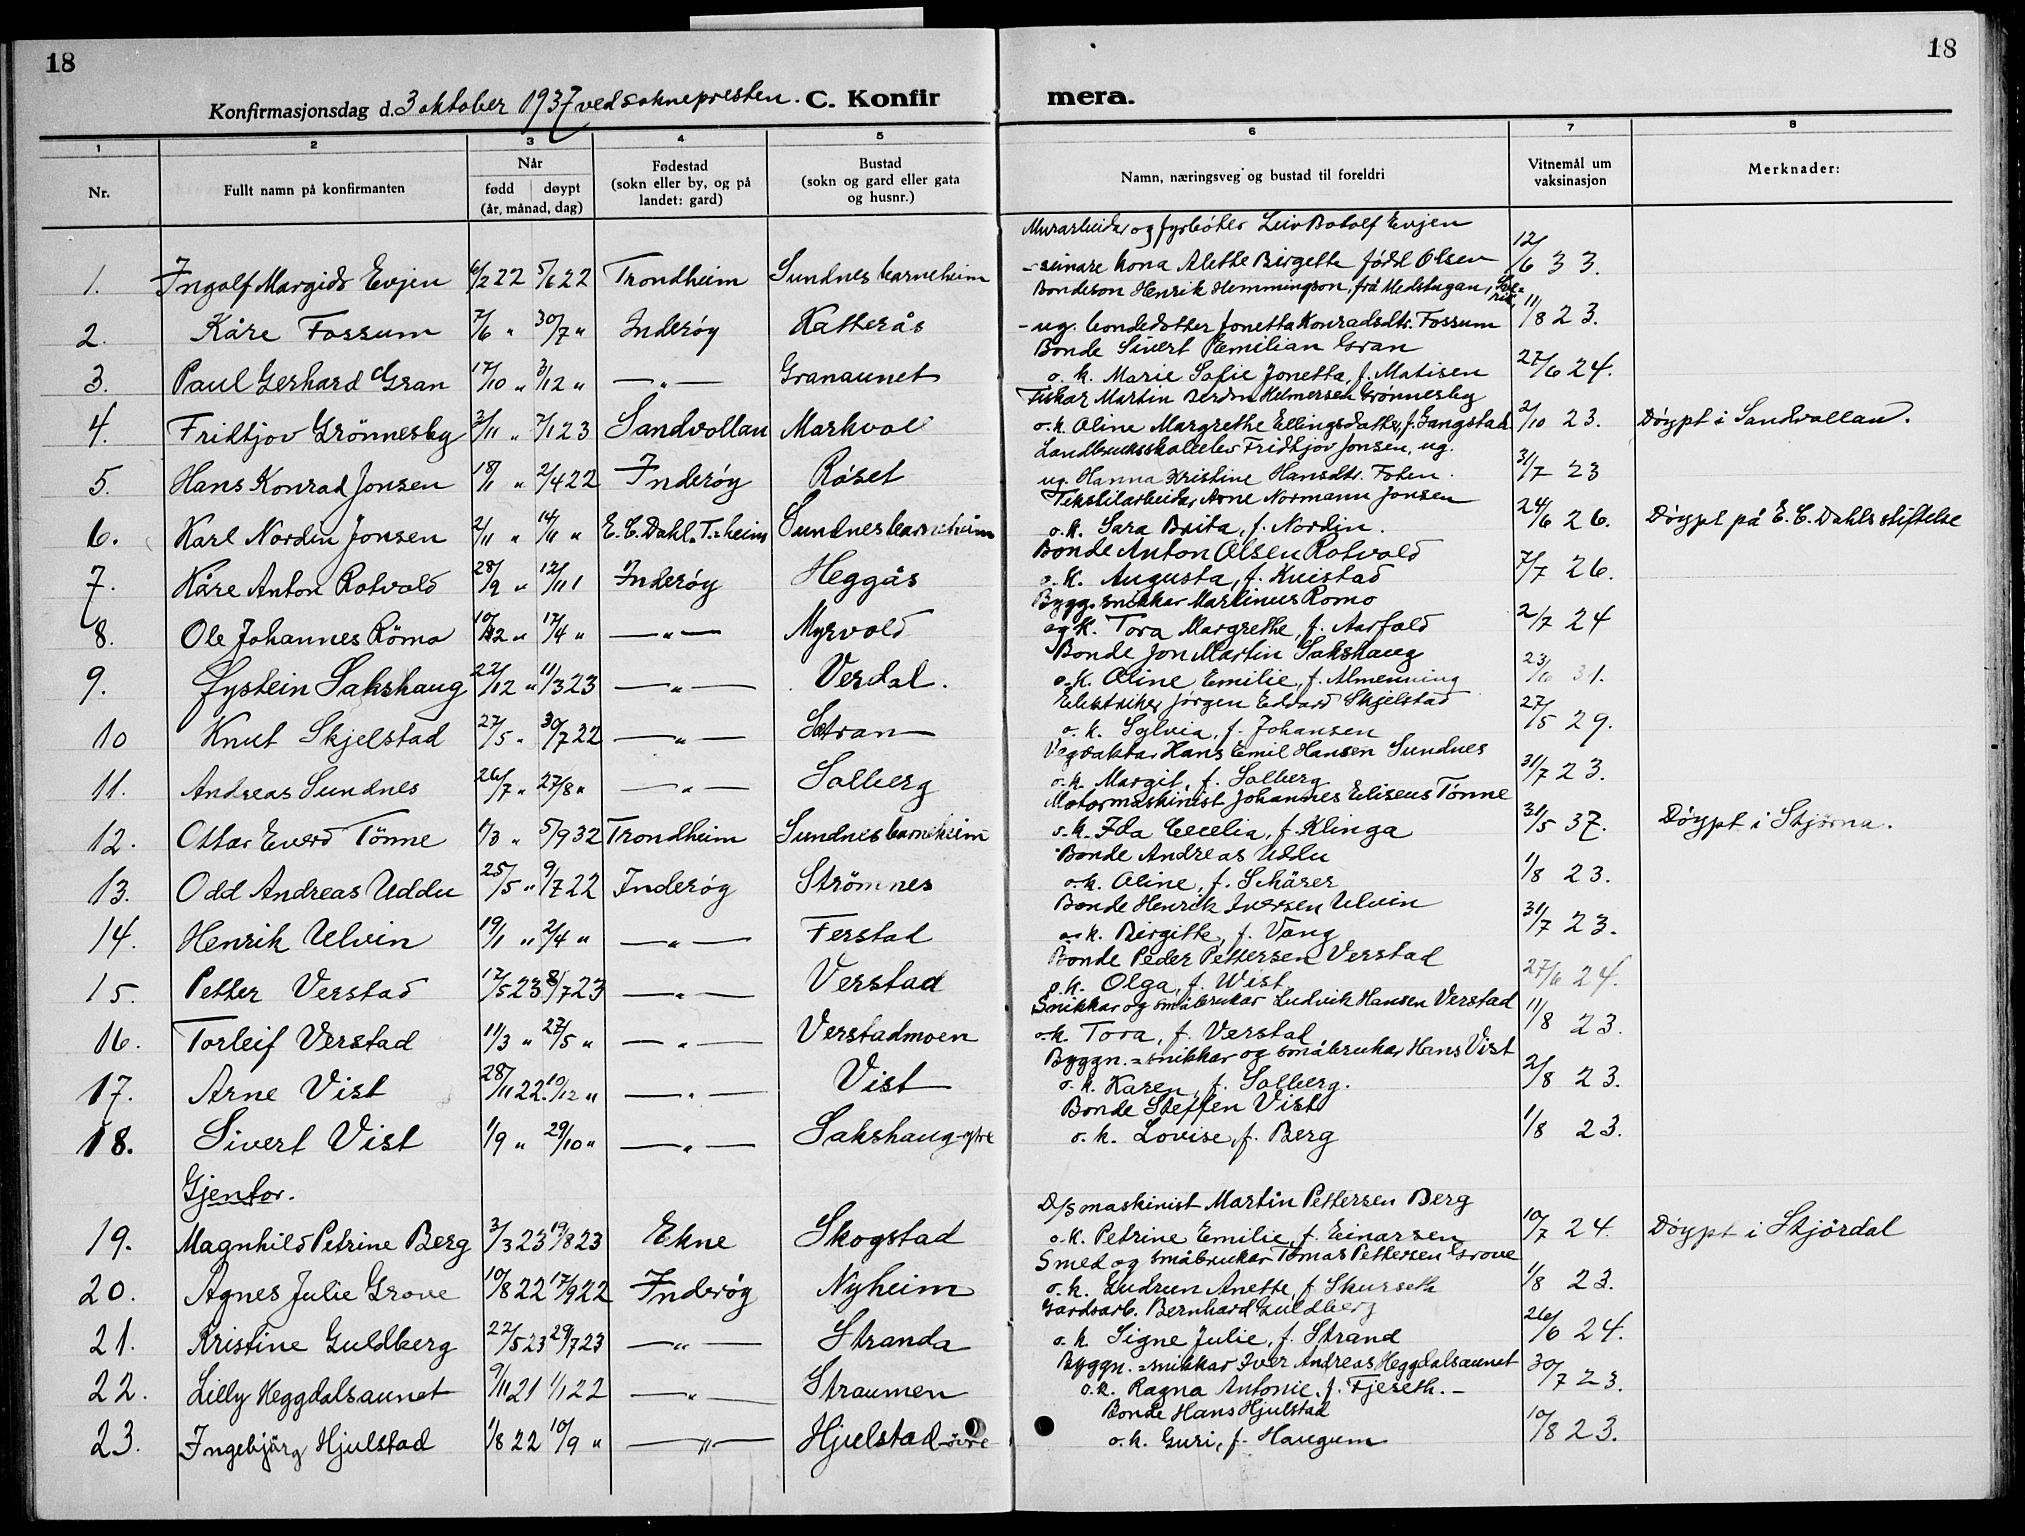 18
18
Konfirmasjonsdag d. 3 oktober 1937 ved soknepresten. C. Konfir mera.
1 2 3 4 5 6 7 8
Nr. Fullt namn på konfirmanten Når født døypt (år, månad, dag) Fødestad (sokn eller by, og på landet: gard) Bustad (sokn og gard eller gata og husnr.) Namn, næringsveg og bustad til foreldri Vitnemål um vaksinasjon Merknader:
Murarbeidar og fyrbøter Leiv Botolf Evjen
1. Ingolf Margido Evjen 6/2 22 5/6 22 Trondheim Sundnes barneheim - seinare kona Alette Birgette fødd Olsen 12/6 33.
Bondeson Henrik Hemmingson, frå Medstugan,
2. Kåre Fossum 7/6 " 30/7 " Inderøy Katterås - ug. bondedotter Jonetta Konradsdtr. Fossum 11/8 23.
Bonde Sivert Emilian Gran
3. Paul Gerhard Gran 17/10 " 3/12 " —"— Granaunet o. k. Marie Sofie Jonetta, f. Matisen 27/6 24.
Fiskar Martin Helmersen Grønnesby
4. Fridtjov Grönnesby 3/11 " 7/1 23 Sandvollan Markvol o. k. Oline Margrethe Ellingsdatter, f. Gangstad 2/10 23. Döypt i Sandvollan.
Landbruksskuleelev Fridtjov Jonsen, ug.
5. Hans Konrad Jonsen 18/1 " 2/4 22 Inderöy Röset ug. Hanna Kristine Hansdtr. Foten. 31/7 23
Tekstilarbeidar Arne Normann Jonsen
6. Karl Nordin Jonsen 2/11 " 14/11 " E. C. Dahl. T.=heim Sundnes barneheim o. k. Sara Brita, f. Nordin. 24/6 26. Döypt på E. C. Dahls stiftelse
Bonde Anton Olsen Rotvold
7. Kåre Anton Rotvold 28/9 " 12/11 Inderøy Heggås o. k. Augusta, f. Kvistad 7/7 26.
Byggsnikkar Martinus Romo
8. Ole Johannes Römo 17/4 " —"— Myrvold og k. Tora Margrethe, f. Aarfald 2/7 24
Bonde Jon Martin Sakshaug
9. Øystein Sakshaug 22/12 " 11/3 23 —"— Verdal. o. k. Oline Emilie, f. Almenning 31.
Elektriker Jørgen Edvard Skjelstad
10 Knut Skjelstad 27/5 " 30/7 22 —"— Stran o. k. Sylvia, f. Johansen 27/5 29.
Vegvaktar Hans Emil Hansen Sundnes
11. Andreas Sundnes 26/7 " 27/8 " —"— Solberg o. k. Margit, f. Solberg 31/7 23.
Motormaskinist Johannes Eliseus Tönne
12. Ottar Everd Tönne 1/3 " 5/9 32 Trondheim Sundnes barneheim o. k. Ida Cecelia, f. Klinga 31/5 37. Döypt i Stjörna.
Bonde Andreas Uddu
13. Odd Andreas Uddu 25/5 " 9/7 22 Inderöy Strömnes o. k. Oline, f. Schärer 1/8 23.
Bonde Henrik Iversen Ulvin
14. Henrik Ulvin 19/1 " 2/4 " —"— Ferstad o. k. Birgitte, f. Vang 31/7 23.
Bonde Peder Pettersen Verstad
15. Petter Verstad 17/5 23 8/7 23 —"— Verstad o. k. Olga, f. Wist 27/6 24.
Snikkar og småbrukar Ludvik Hansen Verstad
16. Torleif Verstad 11/3 " 27/5 " —"— Verstadmoen o. k. Tora, f. Verstad 11/8 23.
Byggn.=snikkar og småbrukar Hans Vist
17. Arne Vist 28/11 22. 10/12 " —"— Vist o. k. Karen, f. Solberg. 2/8 23.
Bonde Steffen Vist
18. Sivert Vist 1/9 " 29/10 " —"— Sakshaug-ytre o. k. Lovise, f. Berg 1/8 23.
Gjentor.
D/S maskinist Martin Pettersen Berg
19. Magnhild Petrine Berg 3/3 23 19/8 23 Ekne Skogstad o. k. Petrine Emilie, f. Einarsen 10/7 24. Döypt i Skjördal
Smed og småbrukar Tomas Pettersen Grove
20. Agnes Julie Grove 10/8 22 17/9 22 Inderöy Nyheim o. k. Gudrun Anette, f. Skurseth 1/8 23.
Gardsarb. Bernhard Guldberg
21. Kristine Guldberg 22/5 23 29/7 23 —"— Stranda o. k. Signe Julie, f. Strand 26/6 24.
Byggn.=snikkar Iver Andreas Heggdalsaunet
22. Lilly Heggdalsaunet 9/11 21 1/1 22 —"— Straumen o. k. Ragna Antonie, f. Fjeseth. - 30/7 23.
Bonde Hans Hjulstad
23. Ingebjörg Hjulstad 1/8 22 10/9 " —"— Hjulstad övre o. k. Guri, f. Haugum 10/8 23.